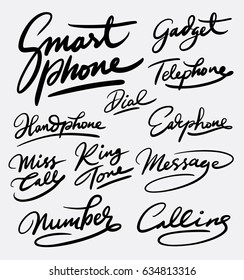 Smart
phone
Gadget
Telephone
Dial
Handphone
Earphone
Miss
Call
Ring
Tone
Message
Number
Calling
shutterstock
IMAGE ID: 634813316
www.shutterstock.com